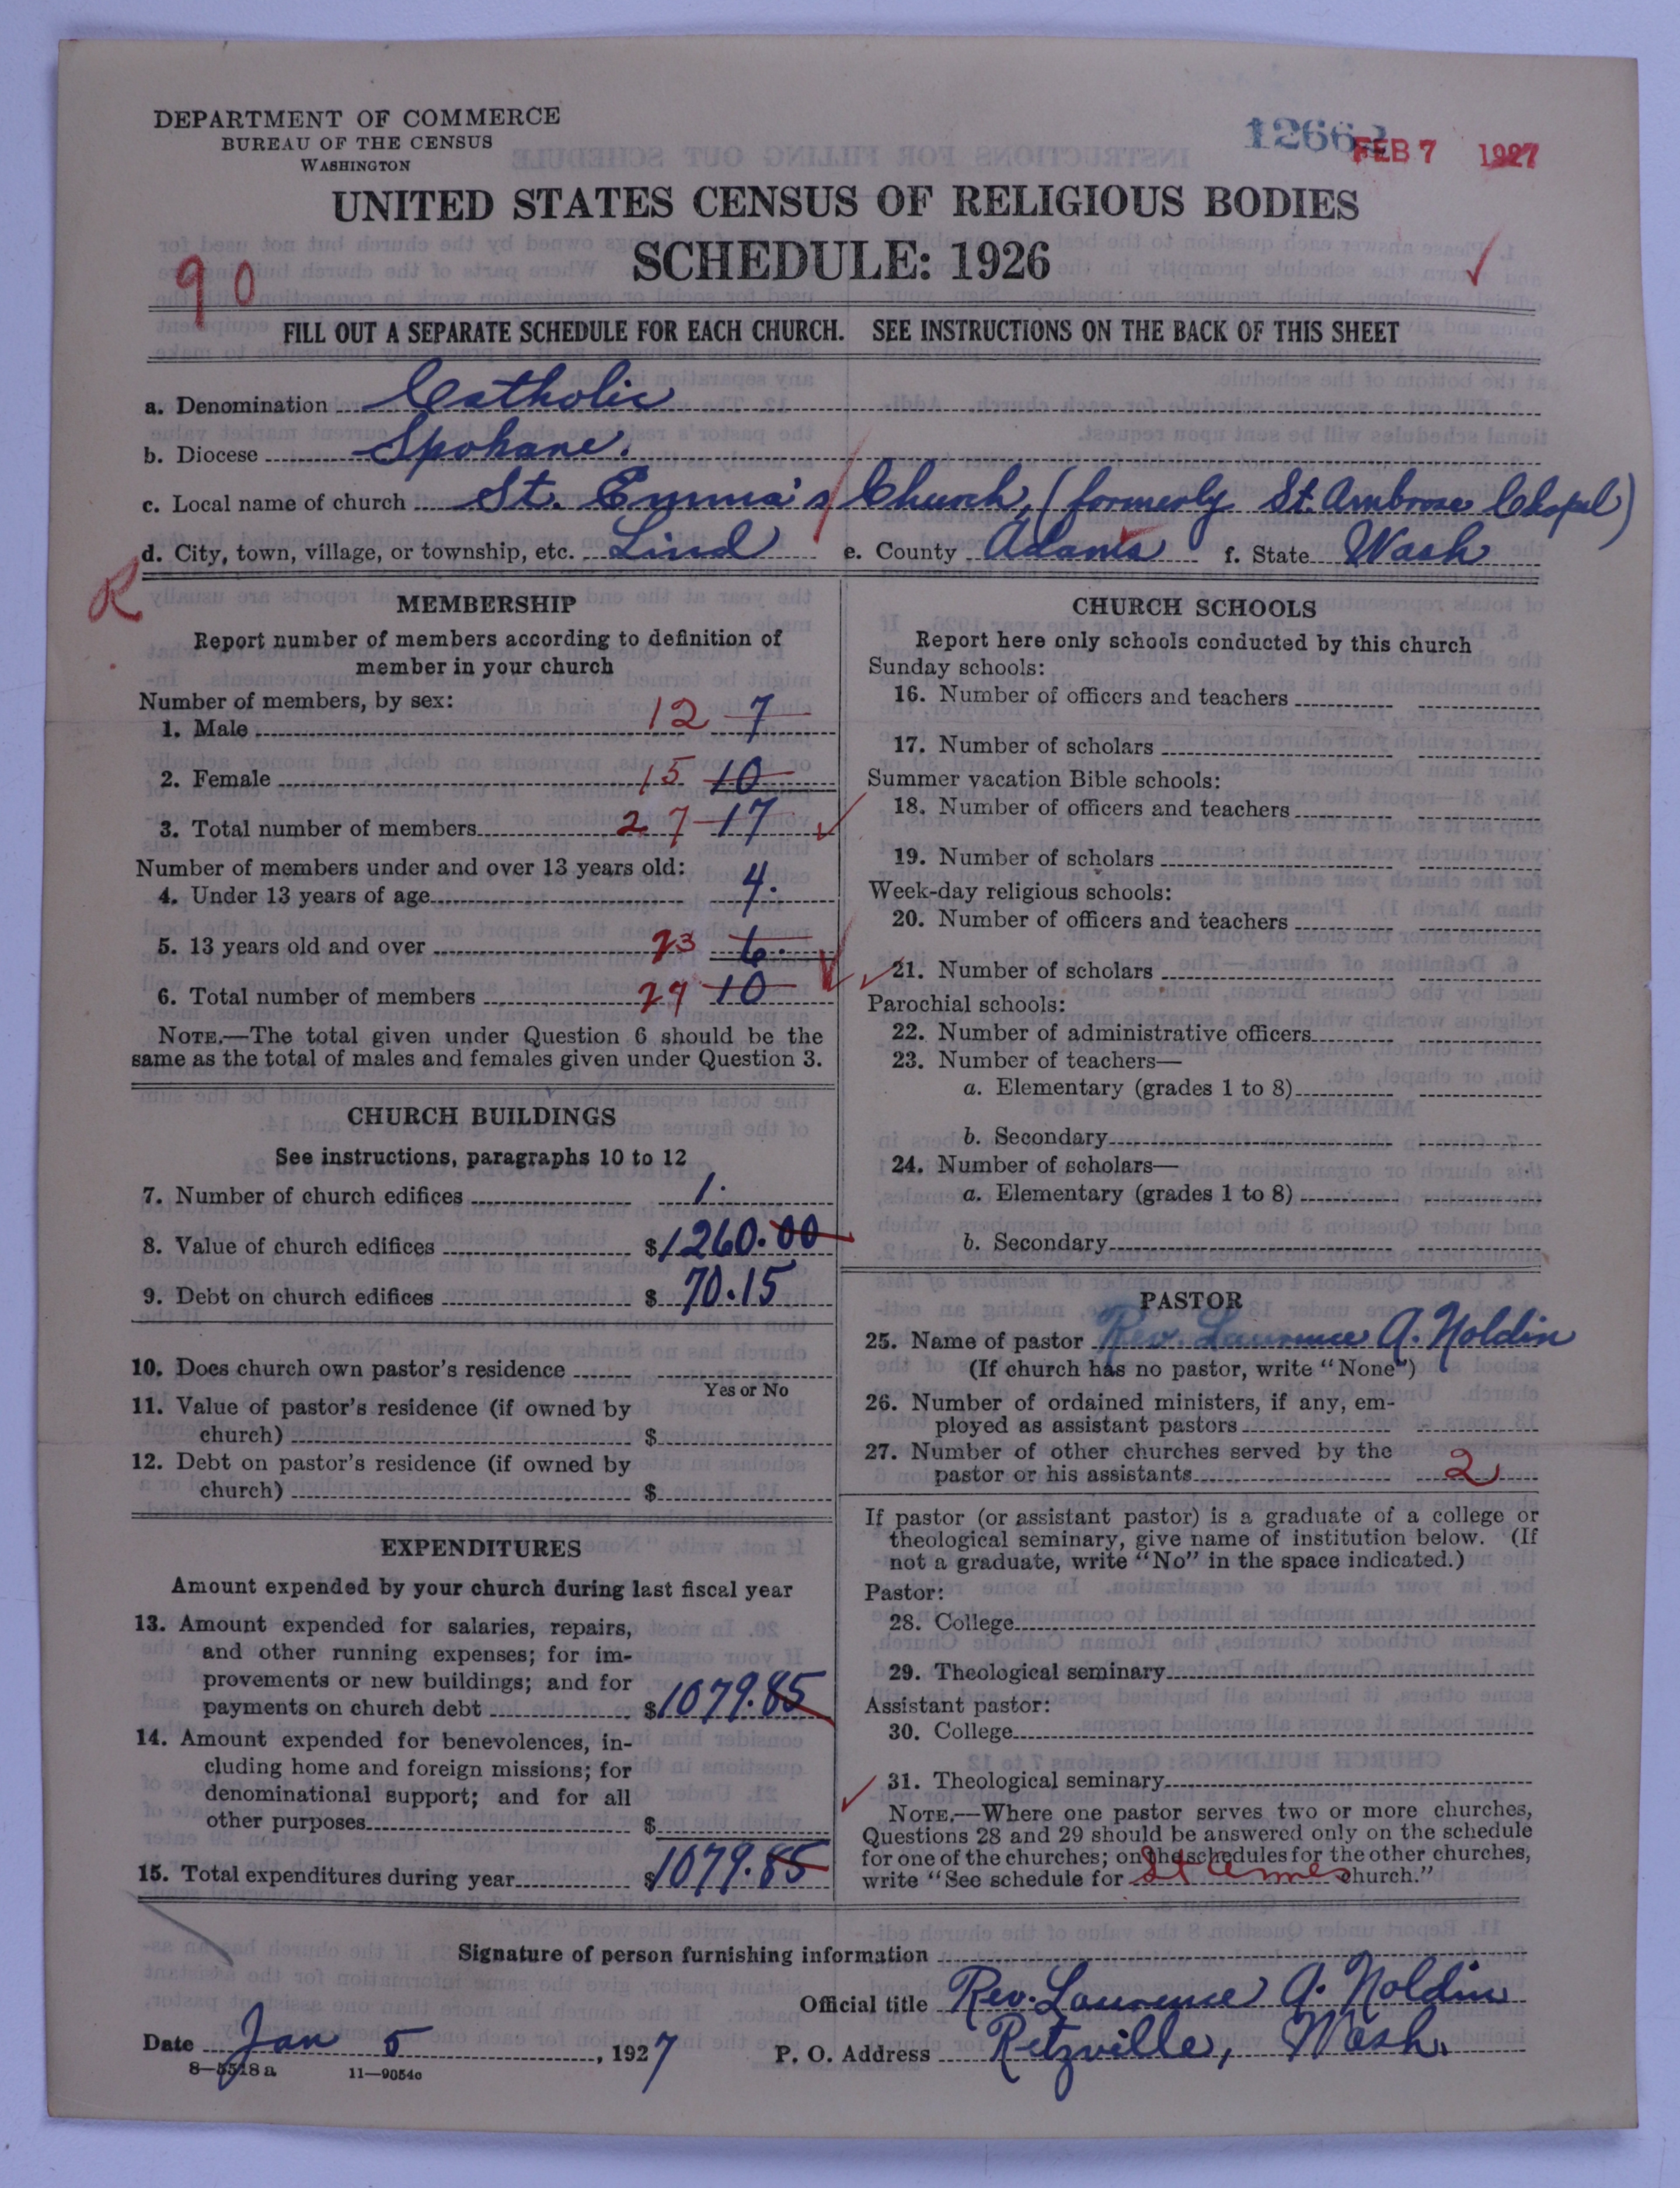 DEPARTMENT OF COMMERCE
BUREAU OF THE CENSUS
WASHINGTON
12662
FEB 7 1927
UNITED STATES CENSUS OF RELIGIOUS BODIES
SCHEDULE: 1926
90
FILL OUT A SEPARATE SCHEDULE FOR EACH CHURCH. SEE INSTRUCTIONS ON THE BACK OF THIS SHEET
a. Denomination Catholic
b. Diocese Spokane.
c. Local name of church St. Emma's Church, (formerly St. Ambrose Chapel)
d. City, town, village, or township, etc. Lind e. County Adams f. State Wash
R
MEMBERSHIP
Report number of members according to definition of
member in your church
Number of members, by sex:
1. Male 12 7
2. Female 15 10
3. Total number of members 27 17
Number of members under and over 13 years old:
4. Under 13 years of age 4.
5. 13 years old and over 23 6.
6. Total number of members 27 10
NOTE.—The total given under Question 6 should be the
same as the total of males and females given under Question 3.
CHURCH BUILDINGS
See instructions, paragraphs 10 to 12
7. Number of church edifices 1.
8. Value of church edifices $1260.00
9. Debt on church edifices $ 70.15
10. Does church own pastor's residence
Yes or No
11. Value of pastor's residence (if owned by
church) $
12. Debt on pastor's residence (if owned by
church) $
EXPENDITURES
Amount expended by your church during last fiscal year
13. Amount expended for salaries, repairs,
and other running expenses; for im-
provements or new buildings; and for
payments on church debt $1079.85
14. Amount expended for benevolences, in-
cluding home and foreign missions; for
denominational support; and for all
other purposes $
15. Total expenditures during year $1079.85
CHURCH SCHOOLS
Report here only schools conducted by this church
Sunday schools:
16. Number of officers and teachers
17. Number of scholars
Summer vacation Bible schools:
18. Number of officers and teachers
19. Number of scholars
Week-day religious schools:
20. Number of officers and teachers
21. Number of scholars
Parochial schools:
22. Number of administrative officers
23. Number of teachers—
a. Elementary (grades 1 to 8)
b. Secondary
24. Number of scholars—
a. Elementary (grades 1 to 8)
b. Secondary
PASTOR
25. Name of pastor Rev. Laurence A. Noldin
(If church has no pastor, write "None")
26. Number of ordained ministers, if any, em-
ployed as assistant pastors
27. Number of other churches served by the
pastor or his assistants 2
If pastor (or assistant pastor) is a graduate of a college or
theological seminary, give name of institution below. (If
not a graduate, write "No" in the space indicated.)
Pastor:
28. College
29. Theological seminary
Assistant pastor:
30. College
31. Theological seminary
NOTE.—Where one pastor serves two or more churches,
Questions 28 and 29 should be answered only on the schedule
for one of the churches; on the schedules for the other churches,
write "See schedule for St church."
Signature of person furnishing information
Official title Rev. Laurence A. Noldin
Date Jan 5, 1927 P. O. Address Ritzville, Wash.
8—5518a 11—9054c